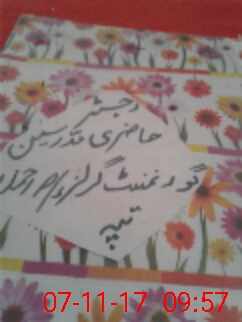 رجسٹر
حاضری مدرسین
گورنمنٹ گرلز
ٹیپہ
07-11-17 09:57